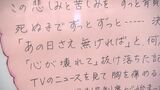 この悲しみと苦しみを ずっと背負
死ぬまでずっとずっと…決
「あの日さえ無ければ」と、何
「心が壊れて」抜け落ちた記
TVのニュースを見て胸を痛める